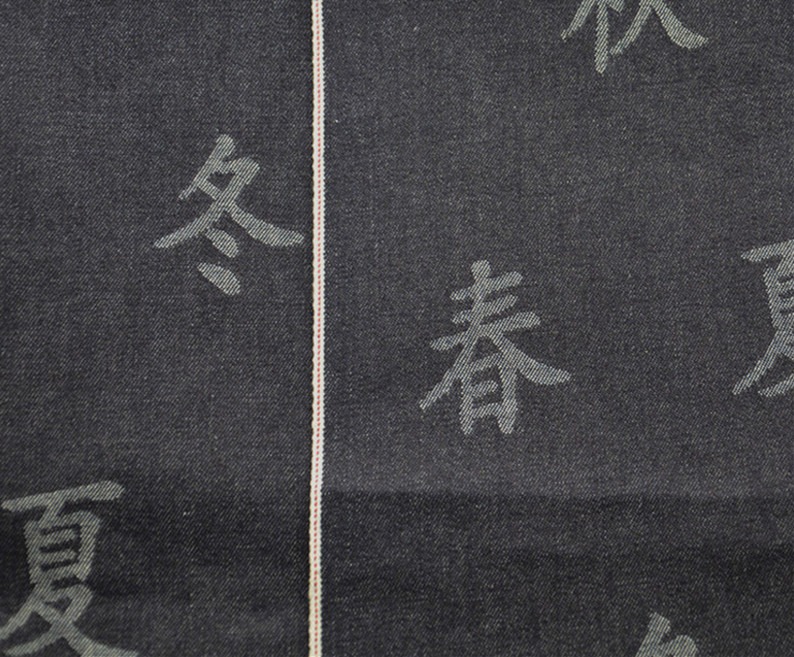 秋
冬
春
夏
夏
冬